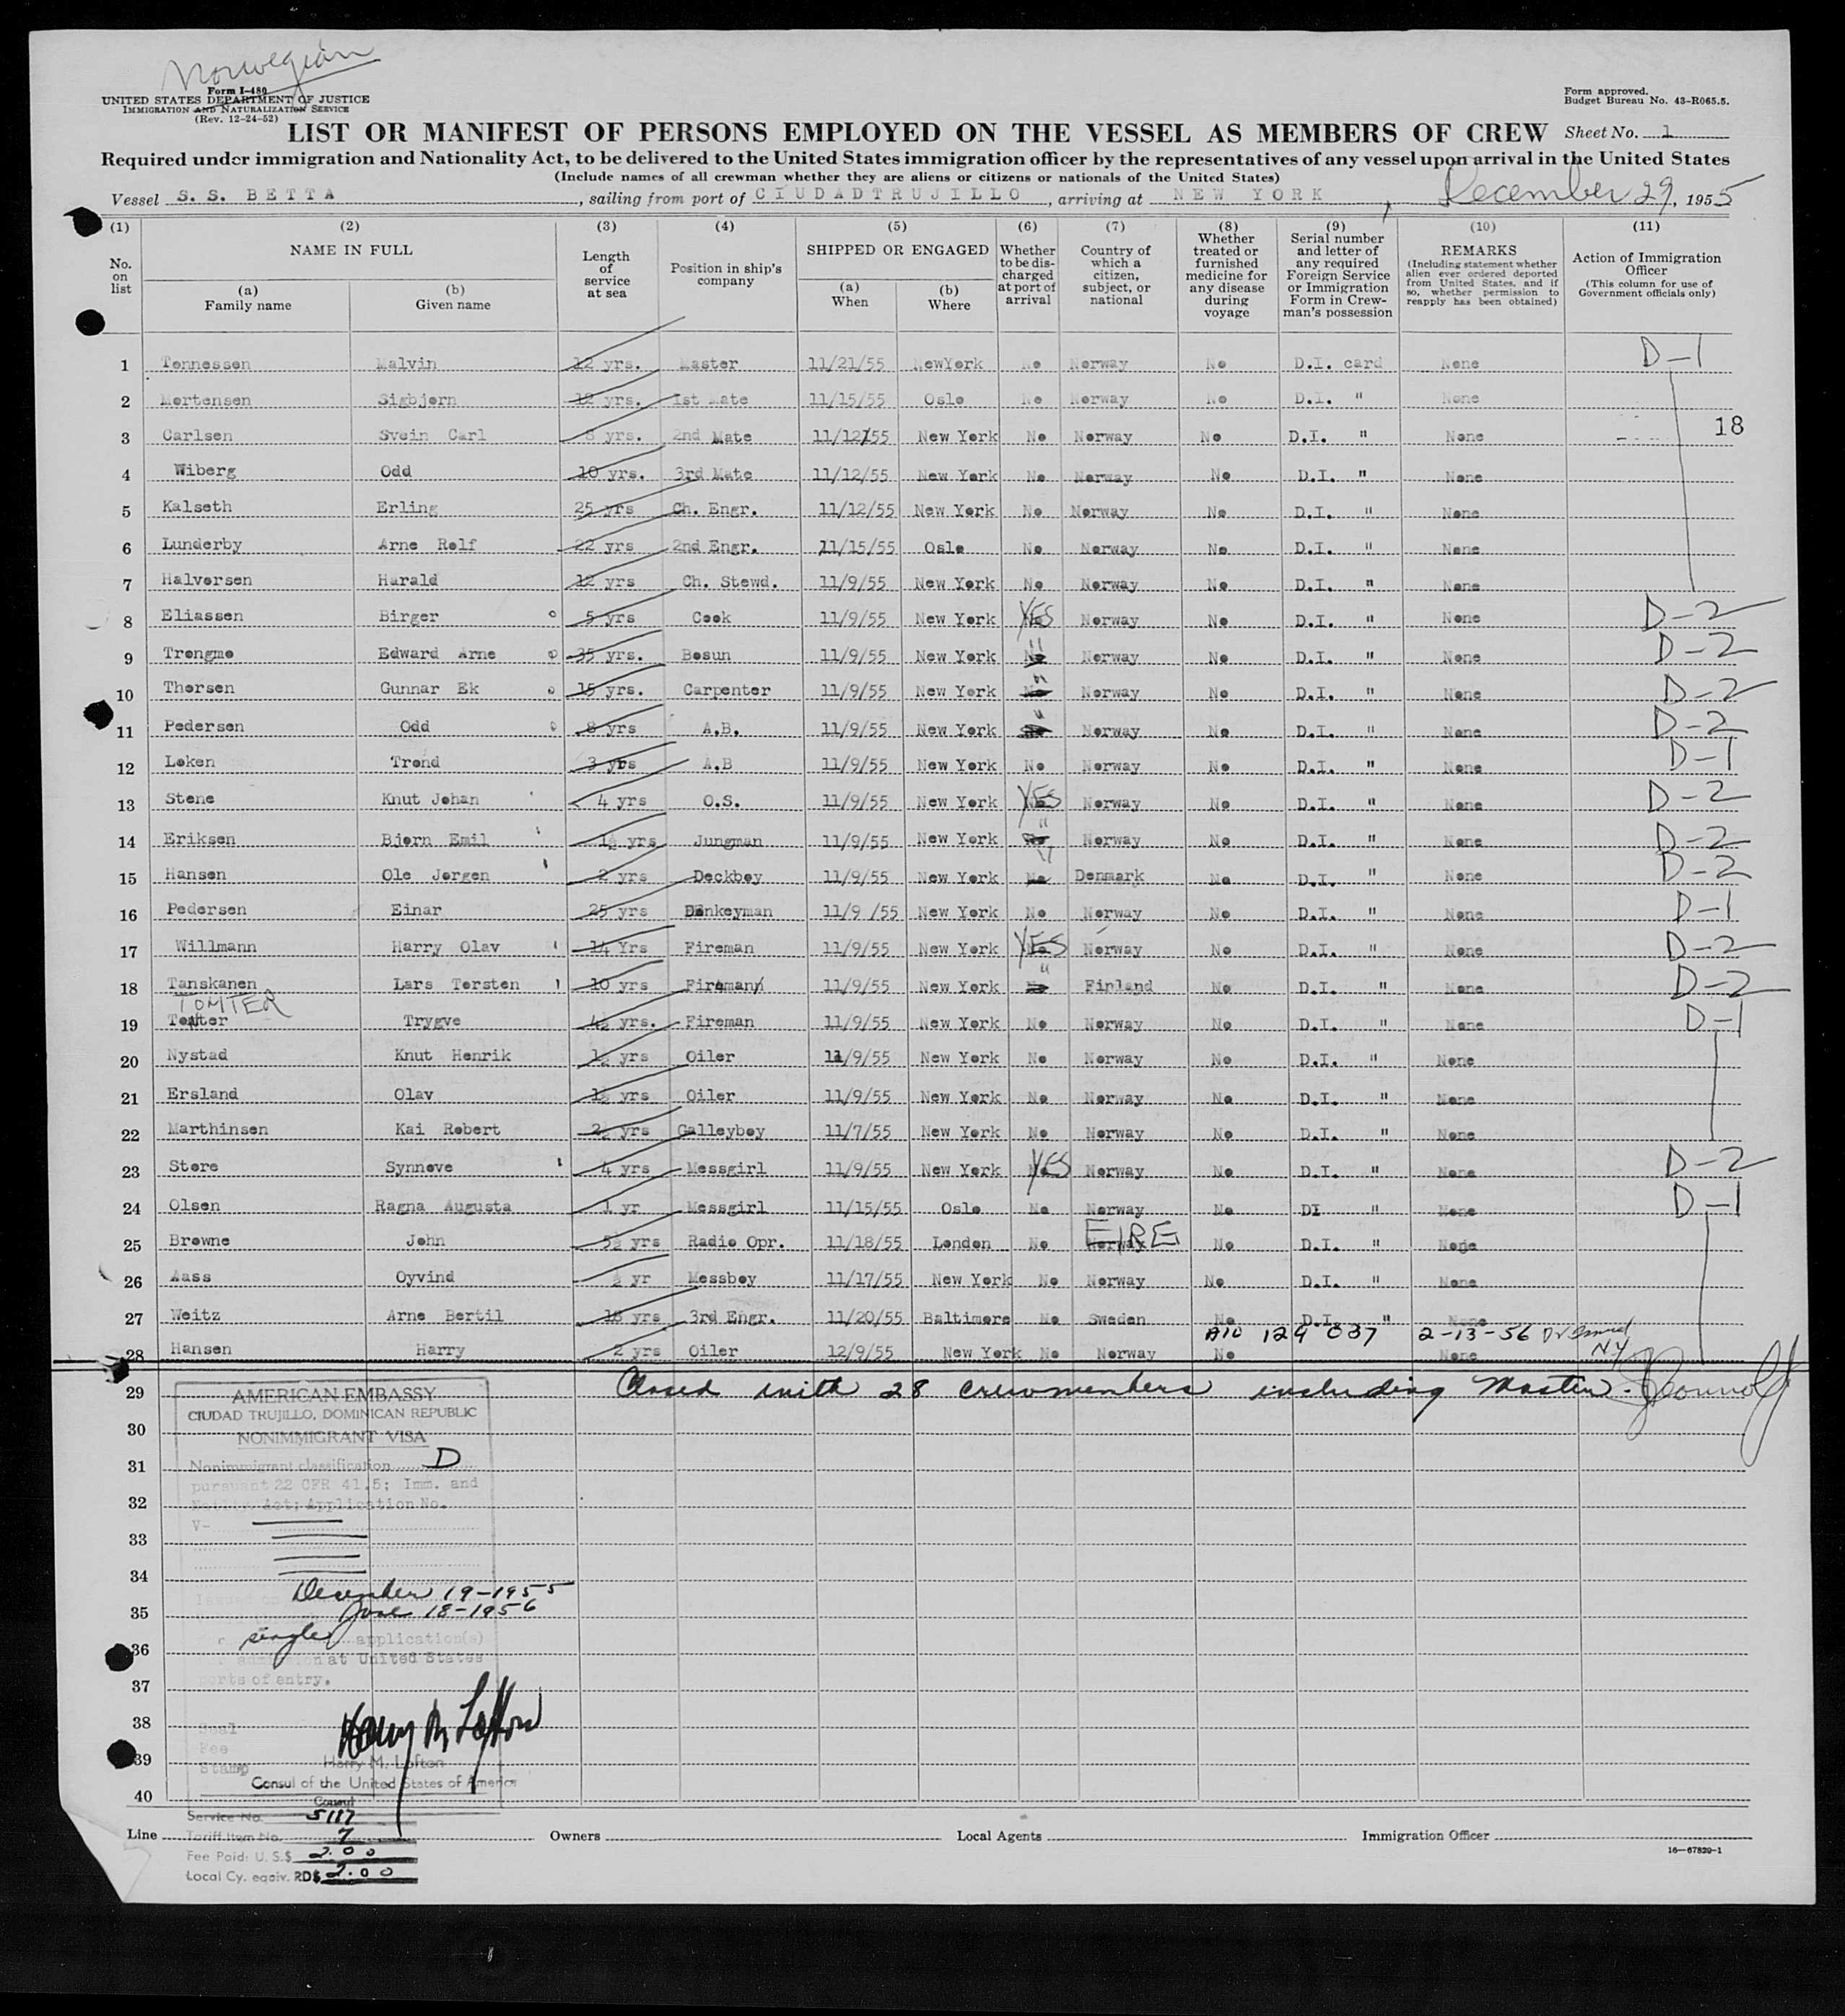 Norwegian
Form I-480
UNITED STATES DEPARTMENT OF JUSTICE
IMMIGRATION AND NATURALIZATION SERVICE
(Rev. 12-24-52)
Form approved.
Budget Bureau No. 43-R065.5.
LIST OR MANIFEST OF PERSONS EMPLOYED ON THE VESSEL AS MEMBERS OF CREW Sheet No. 1
Required under immigration and Nationality Act, to be delivered to the United States immigration officer by the representatives of any vessel upon arrival in the United States
(Include names of all crewman whether they are aliens or citizens or nationals of the United States)
Vessel S. S. BETTA, sailing from port of CIUDADTRUJILLO, arriving at NEW YORK, December 29, 1955
(1) (2) (3) (4) (5) (6) (7) (8) (9) (10) (11)
No. on list
NAME IN FULL
(a) Family name
(b) Given name
Length of service at sea
Position in ship's company
SHIPPED OR ENGAGED
(a) When
(b) Where
Whether to be discharged at port of arrival
Country of which a citizen, subject, or national
Whether treated or furnished medicine for any disease during voyage
Serial number and letter of any required Foreign Service or Immigration Form in Crewman's possession
REMARKS
(Including statement whether alien ever ordered deported from United States, and if so, whether permission to reapply has been obtained)
Action of Immigration Officer
(This column for use of Government officials only)
1 Tonnessen Malvin 12 yrs. Master 11/21/55 NewYork No Norway No D.I. card None D-1
2 Mortensen Sigbjorn 12 yrs. 1st Mate 11/15/55 Oslo No Norway No D.I. " None
3 Carlsen Svein Carl 8 yrs. 2nd Mate 11/12/55 New York No Norway No D.I. " None 18
4 Wiberg Odd 10 yrs. 3rd Mate 11/12/55 New York No Norway No D.I. " None
5 Kalseth Erling 25 yrs Ch. Engr. 11/12/55 New York No Norway No D.I. " None
6 Lunderby Arne Rolf 22 yrs 2nd Engr. 11/15/55 Oslo No Norway No D.I. " None
7 Halvorsen Harald 12 yrs Ch. Stewd. 11/9/55 New York No Norway No D.I. " None
8 Eliassen Birger 5 yrs Cook 11/9/55 New York YES Norway No D.I. " None D-2
9 Trongmo Edward Arne 35 yrs. Bosun 11/9/55 New York " Norway No D.I. " None D-2
10 Thorsen Gunnar Ek 15 yrs. Carpenter 11/9/55 New York " Norway No D.I. " None D-2
11 Pedersen Odd 8 yrs A.B. 11/9/55 New York " Norway No D.I. " None D-2
12 Loken Trond 3 yrs A.B 11/9/55 New York No Norway No D.I. " None D-1
13 Stene Knut Johan 4 yrs O.S. 11/9/55 New York YES Norway No D.I. " None D-2
14 Eriksen Bjorn Emil 1½ yrs Jungman 11/9/55 New York " Norway No D.I. " None D-2
15 Hansen Ole Jorgen 2 yrs Deckboy 11/9/55 New York " No Denmark No D.I. " None D-2
16 Pedersen Einar 25 yrs Donkeyman 11/9 /55 New York No Norway No D.I. " None D-1
17 Willmann Harry Olav 14 Yrs Fireman 11/9/55 New York YES Norway No D.I. " None D-2
18 Tanskanen Lars Torsten 10 yrs Fireman 11/9/55 New York " Finland No D.I. " None D-2
TOMTER
19 Tomter Trygve 4½ yrs. Fireman 11/9/55 New York No Norway No D.I. " None D-1
20 Nystad Knut Henrik 1½ yrs Oiler 11/9/55 New York No Norway No D.I. " None
21 Ersland Olav 1½ yrs Oiler 11/9/55 New York No Norway No D.I. " None
22 Marthinsen Kai Robert 2½ yrs Galleyboy 11/7/55 New York No Norway No D.I. " None
23 Store Synnove 4 yrs Messgirl 11/9/55 New York YES Norway No D.I. " None D-2
24 Olsen Ragna Augusta 1 yr Messgirl 11/15/55 Oslo No Norway No DI " None D-1
25 Browne John 5½ yrs Radio Opr. 11/18/55 London No Norway EIRE No D.I. " None
26 Aass Oyvind ½ yr Messboy 11/17/55 New York No Norway No D.I. " None
27 Weitz Arne Bertil 18 yrs 3rd Engr. 11/20/55 Baltimore No Sweden No D.I. " None
A10 124 037 2-13-56 NY
28 Hansen Harry 2 yrs Oiler 12/9/55 New York No Norway No None
29 Closed with 28 crewmembers including Master.
30
31
32
33
34
35
36
37
38
39
40
AMERICAN EMBASSY
CIUDAD TRUJILLO, DOMINICAN REPUBLIC
NONIMMIGRANT VISA
Nonimmigrant classification D
pursuant 22 CFR 41.5; Imm. and
Natlty. Act; Application No.
V-
December 19-1955
June 18-1956
single application(s)
admission at United States
ports of entry.
Seal
Fee
Stamp
Harry M. Lofton
Harry M. Lofton
Consul of the United States of America
Consul
Service No. 5117
Tariff Item No. 7
Fee Paid: U.S.$ 2.00
Local Cy. equiv. RD$ 2.00
Line Owners Local Agents Immigration Officer
16—67829-1